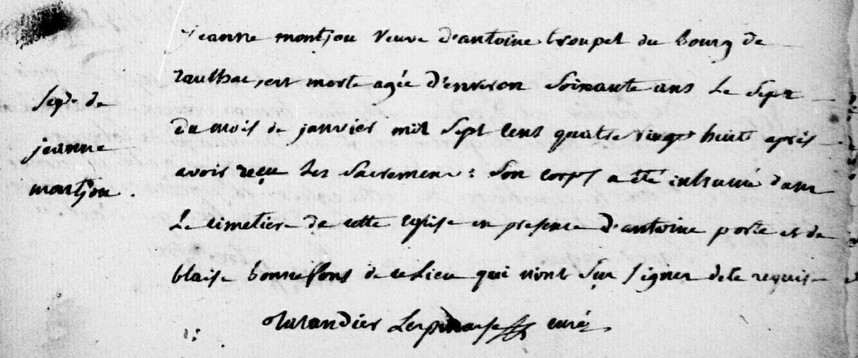 sep.re de
jeanne
montjou.
jeanne montjou veuve d'antoine troupel du bourg de
raulhac, est morte agée d'environ soixante ans le sept
du mois de janvier mil sept cens quatre vingt huit après
avoir reçu les sacremens: son corps a été inhumé dans
le cimetiere de cette eglise en presence d'antoine porte et de
blaise bonnefons de ce lieu qui n'ont sçu signer de ce requis
curé